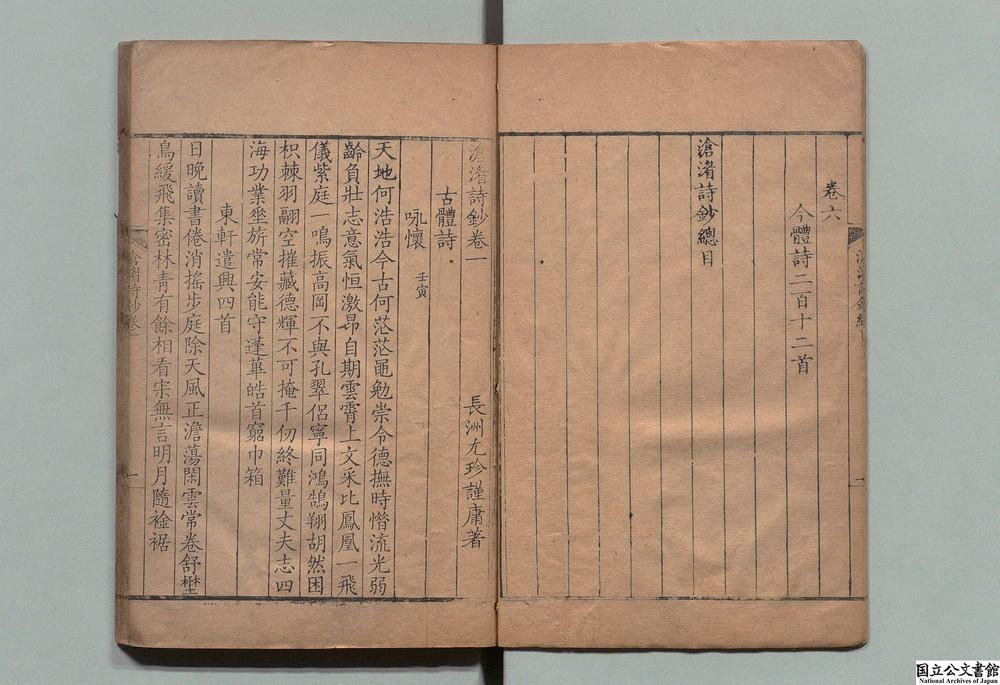 卷六
今體詩二百十二首
滄渚詩鈔總目
滄渚詩鈔卷一
長洲尤珍謹庸著
古體詩
咏懷 壬寅
天地何浩浩今古何茫茫黽勉崇令德撫時惜流光弱
齡負壯志意氣恒激昂自期雲霄上文采比鳳凰一飛
儀紫庭一鳴振高岡不與孔翠侶寧同鴻鵠翔胡然困
枳棘羽翮空摧藏德輝不可掩千仞終難量丈夫志四
海功業埀旂常安能守蓬蓽皓首窮巾箱
東軒遣興四首
日晚讀書倦消搖步庭除天風正澹蕩閑雲常卷舒
鳥緩飛集密林青有餘相看宋無言明月隨襝裾
滄渚詩鈔卷一
一
国立公文書館
National Archives of Japan